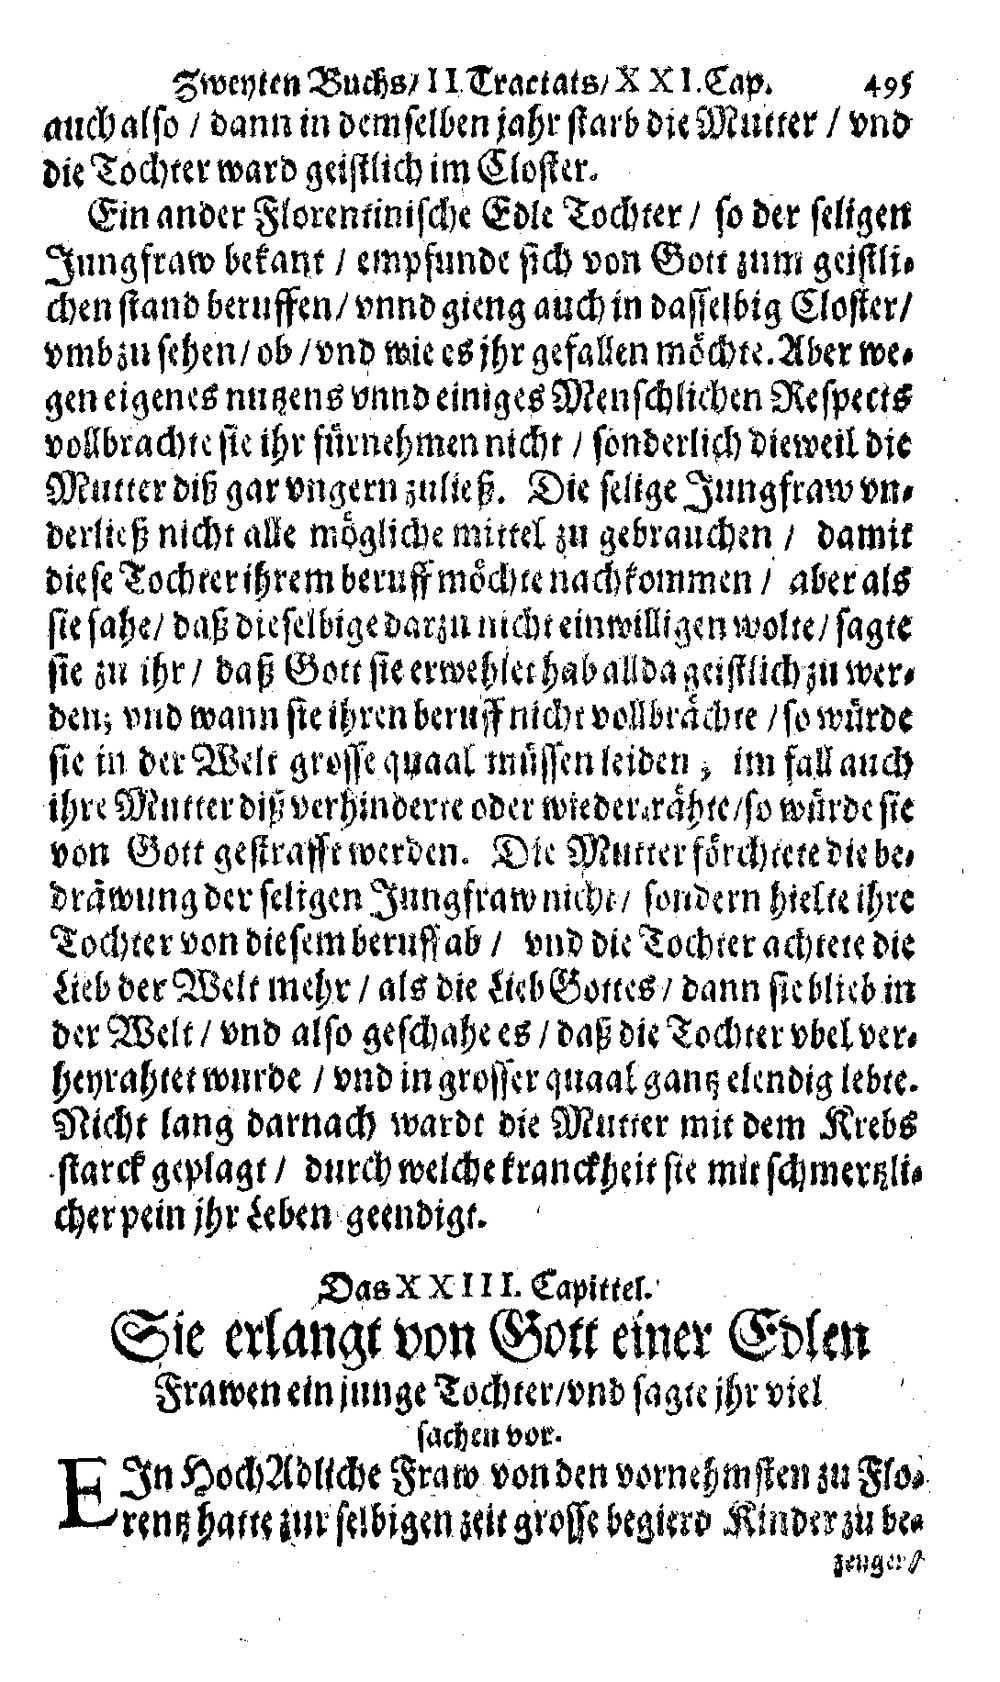 Zweyten Buchs/ II Tractats/ XXI. Cap. 495
auch also / dann in demselben jahr starb die Mutter / vnd
die Tochter ward geistlich im Closter.
Ein ander Florentinische Edle Tochter / so der seligen
Jungfraw bekant / empfunde sich von Gott zum geistli-
chen stand beruffen / vnnd gieng auch in dasselbig Closter /
vmb zu sehen / ob / vnd wie es jhr gefallen möchte. Aber we-
gen eigenes nutzens vnnd einiges Menschlichen Respects
vollbrachte sie ihr fürnehmen nicht / sonderlich dieweil die
Mutter diß gar vngern zuließ. Die selige Jungfraw vn-
derließ nicht alle mögliche mittel zu gebrauchen / damit
diese Tochter ihrem beruff möchte nachkommen / aber als
sie sahe / daß dieselbige darzu nicht einwilligen wolte / sagte
sie zu ihr / daß Gott sie erwehlet hab allda geistlich zu wer-
den; vnd wann sie ihren beruff nicht vollbrächte / so würde
sie in der Welt grosse quaal müssen leiden; im fall auch
ihre Mutter diß verhinderte oder wiederrähte / so würde sie
von Gott gestrafft werden. Die Mutter förchtete die be-
dräwung der seligen Jungfraw nicht / sondern hielte ihre
Tochter von diesem beruff ab / vnd die Tochter achtete die
Lieb der Welt mehr / als die Lieb Gottes / dann sie blieb in
der Welt / vnd also geschahe es / daß die Tochter vbel ver-
heyrahtet wurde / vnd in grosser quaal gantz elendig lebte.
Nicht lang darnach wardt die Mutter mit dem Krebs
starck geplagt / durch welche kranckheit sie mit schmertzli-
cher pein jhr Leben geendigt.
Das XXIII. Capittel.
Sie erlangt von Gott einer Edlen
Frawen ein junge Tochter / vnd sagte jhr viel
sachen vor.
EJn HochAdliche Fraw von den vornehmsten zu Flo-
rentz hatte zur selbigen zeit grosse begierd Kinder zu be-
zeugen /